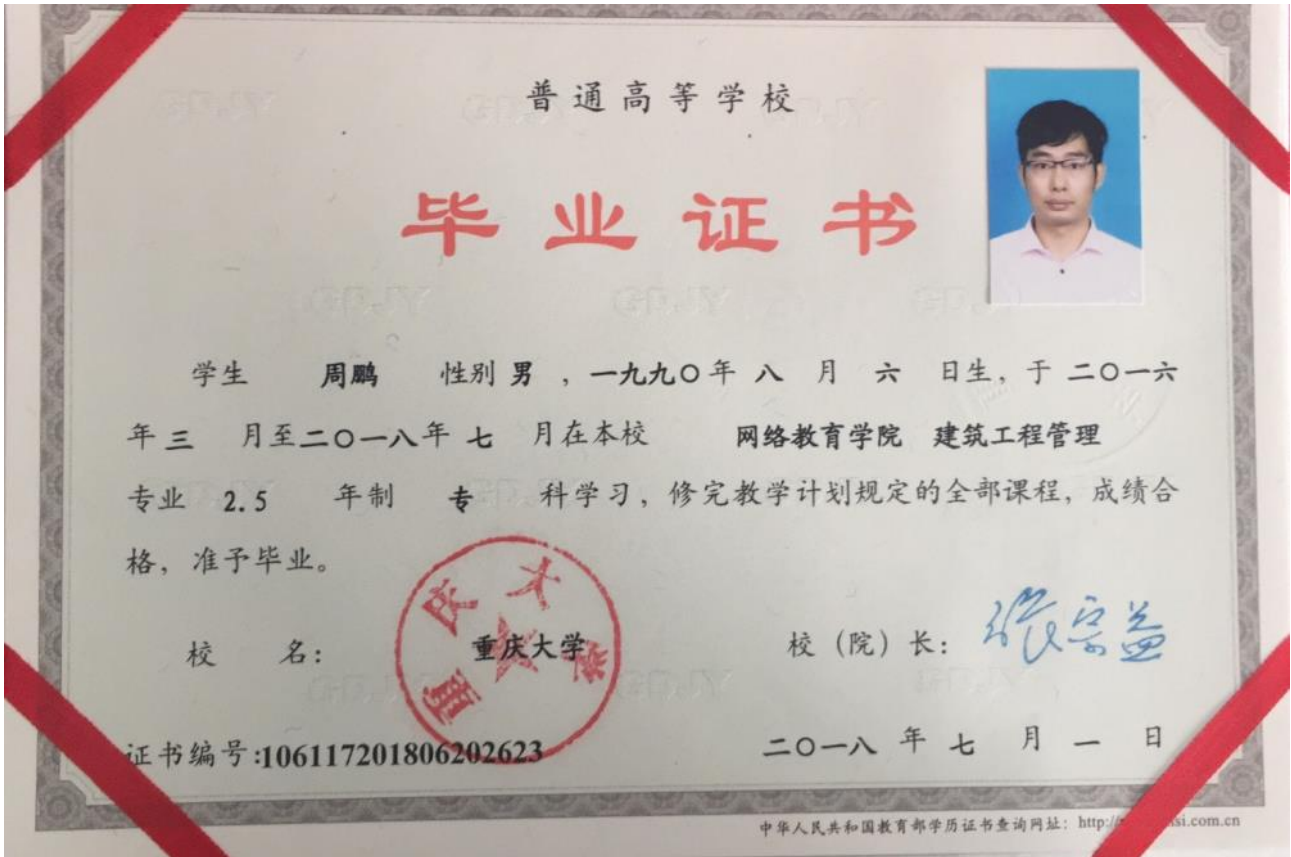 普通高等学校
毕业证书
学生 周鹏 性别 男 ，一九九〇年 八 月 六 日生，于 二〇一六
年 三 月至二〇一八年 七 月在本校 网络教育学院 建筑工程管理
专业 2.5 年制 专 科学习，修完教学计划规定的全部课程，成绩合
格，准予毕业。
重庆大学
校 名： 重庆大学 校（院）长： 张宗益
证书编号:106117201806202623 二〇一八 年 七 月 一 日
中华人民共和国教育部学历证书查询网址：http://
si.com.cn